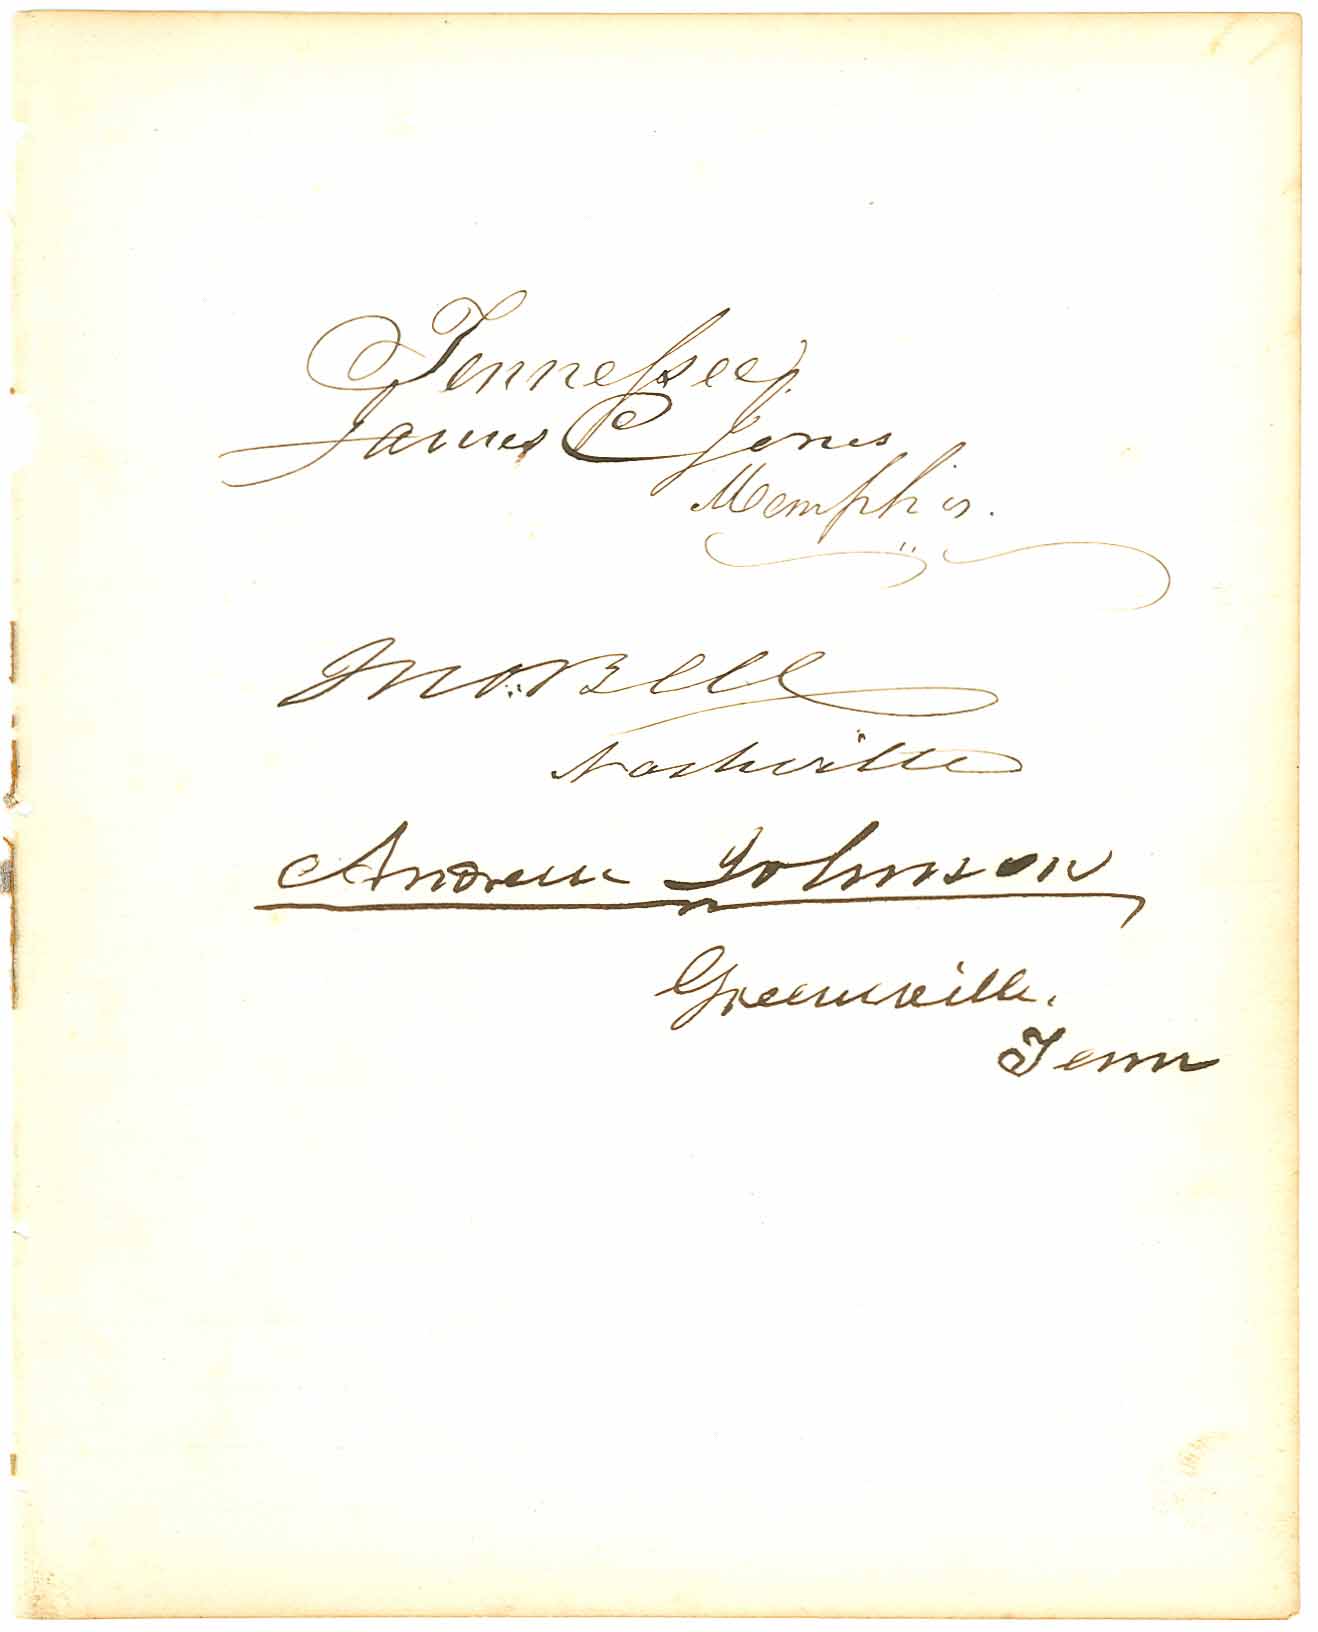 Tennessee
James C Jones
Memphis.
Jno. Bell
Nashville
Andrew Johnson
Greeneville,
Tenn